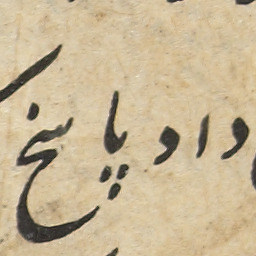 داد پاسخ